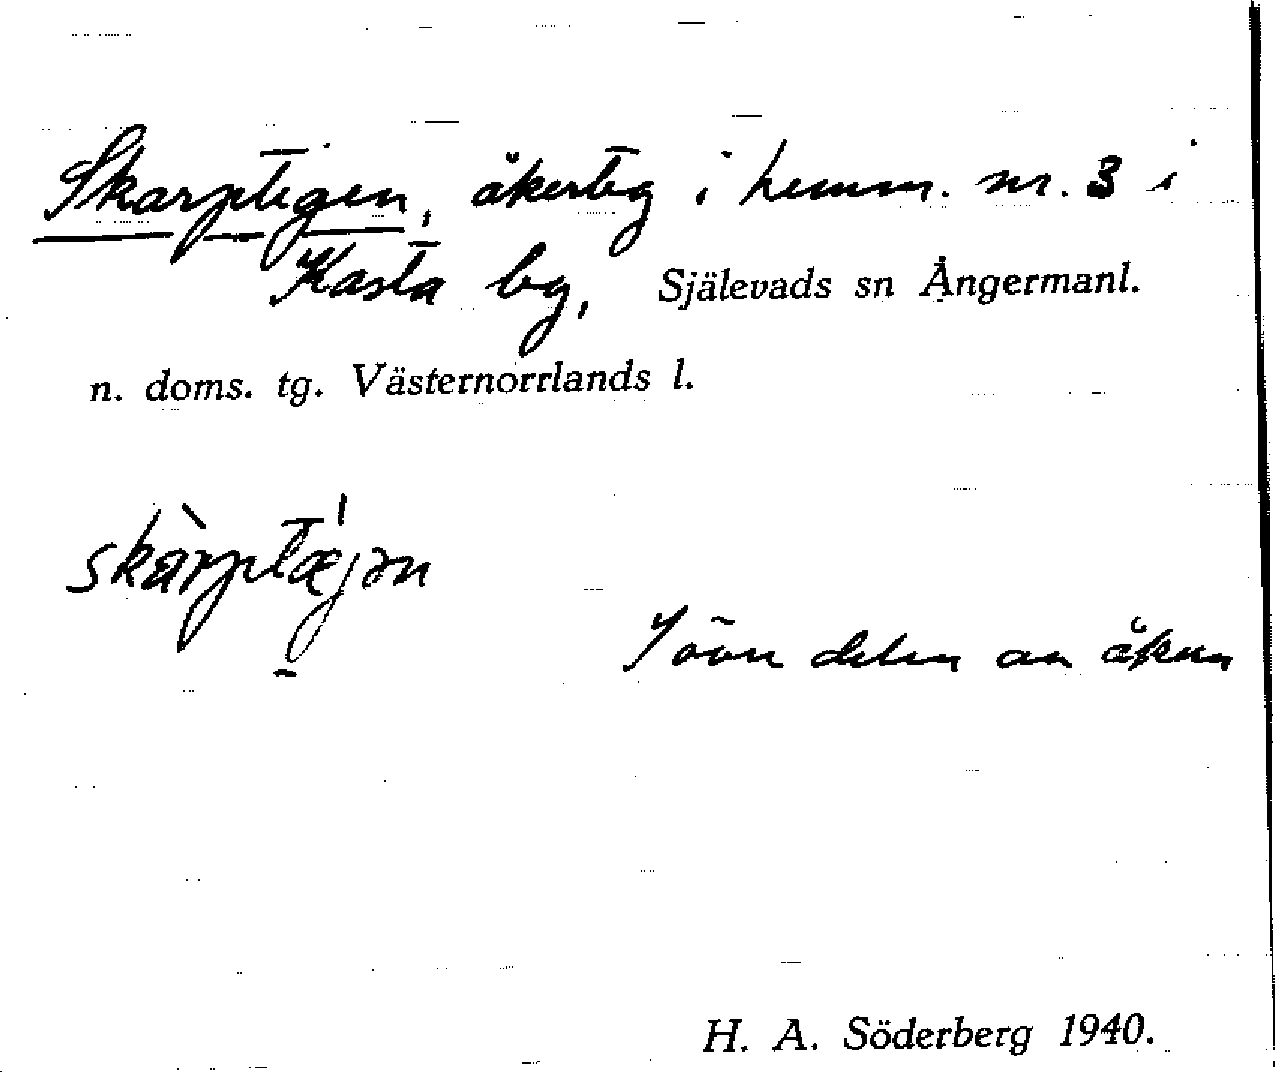 Skarptegen, åkerteg i hemm. nr. 3 i
Kasta by, Själevads sn Ångermanl.
n. doms. tg. Västernorrlands l.
skàrptæ̀jən
I övre delen av åkern
H. A. Söderberg 1940.